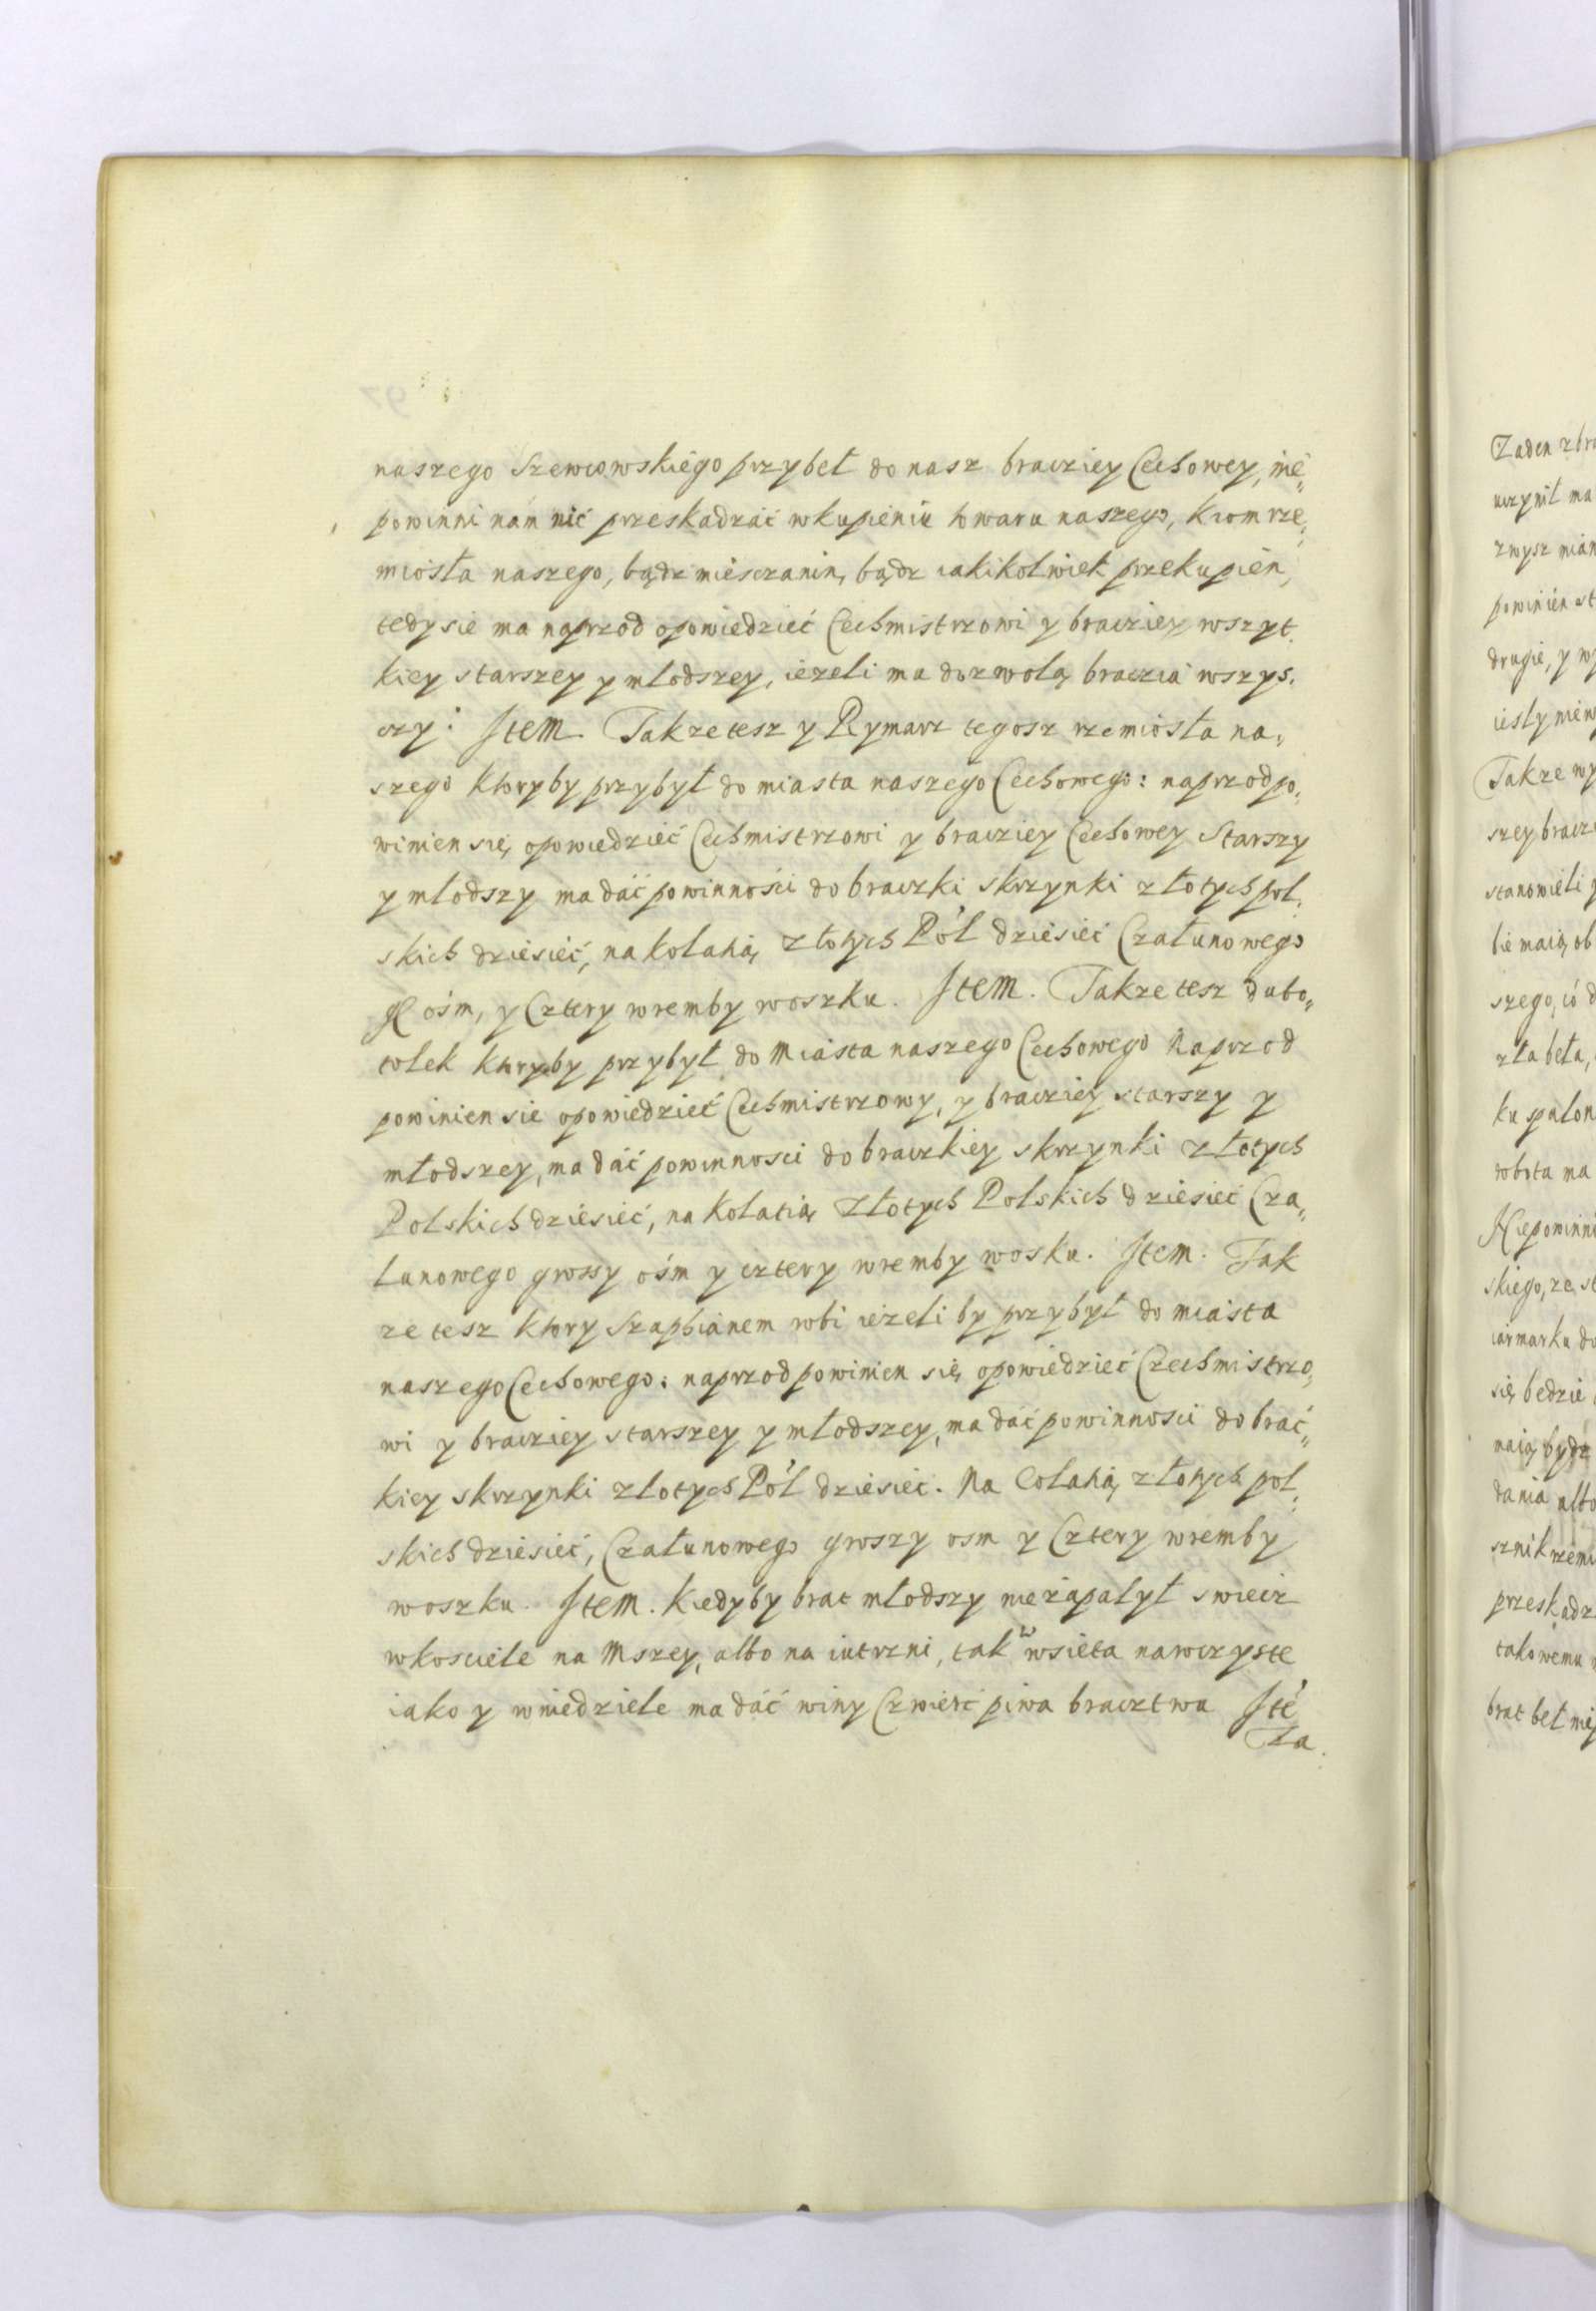 naszego Szewcowskiego przybeł do nasz bracziey Cechowey, nie„
powinni nam nić przeskadzać w kupieniu towaru naszego, krom rze„
miosła naszego, bądz miesczanin, bądz iakikolwiek przekupien,
tedy sie ma naprzod opowiedzieć Cechmistrzowi y bracziey wszyt„
kiey starszey y mlodszey, iezeli ma dozwolą braczia wszys„
czy. Item. Takze tesz y Rymarz tegosz rzemiosła na„
szego ktoryby przybył do miasta naszego Cechowego: naprzod po„
winien się opowiedzieć Cechmistrzowi y bracziey Cechowey Starszy
y młodszy ma dać powinności do braczki skrzynki złotych pol„
skich dziesieć, na kolatią złotych Pól dziesieć Czałunowego
gr ośm, y Cztery wremby woszku. Item. Takze tesz duto„
tolek ktoryby przybył do Miasta naszego Cechowego Naprzod
powinien sie opowiedzieć Cechmistrzowy, y bracziey starszy y
młodszey, ma dać powinnosci do braczkiey skrzynki złotych
Polskich dziesieć, na Kolatią złotych Polskich dziesieć Cza„
lunowego grossy ośm y cztery wremby wosku. Item. Tak
ze tesz ktory Szaphianem robi iezeli by przybył do miasta
naszego Cechowego: naprzod powinien się opowiedzieć Czechmistrzo„
wi y bracziey starszey y młodszey, ma dać powinnosci do brać„
kiey skrzynki zlotych Pól dziesieć. Na Colatią złotych pol„
skich dziesieć, Czałunowego groszy osm y Cztery wremby
woszku. Item. Kiedyby brat młodszy nie zapalył swiecz
w kosciele na Mszey, albo na iutrzni, tak w wsieta narczyste
iako y w niedziele ma dać winy Czwierć piwa bracztwu Ité
Za
Zaden z bra
uczynił ma
zwysz mian
powinien st
drugie, y wy
iesly niew
Takze wy
szey bracz
stanowieli p
bie maią ob
szego, ió d
zła beła,
ku spalon
robota ma
Niepowinni
skiego, ze st
iarmarku do
się bedzie
naią bydz
dania albo
sznik rzemi
przeskadz
takowemu
brat beł mię